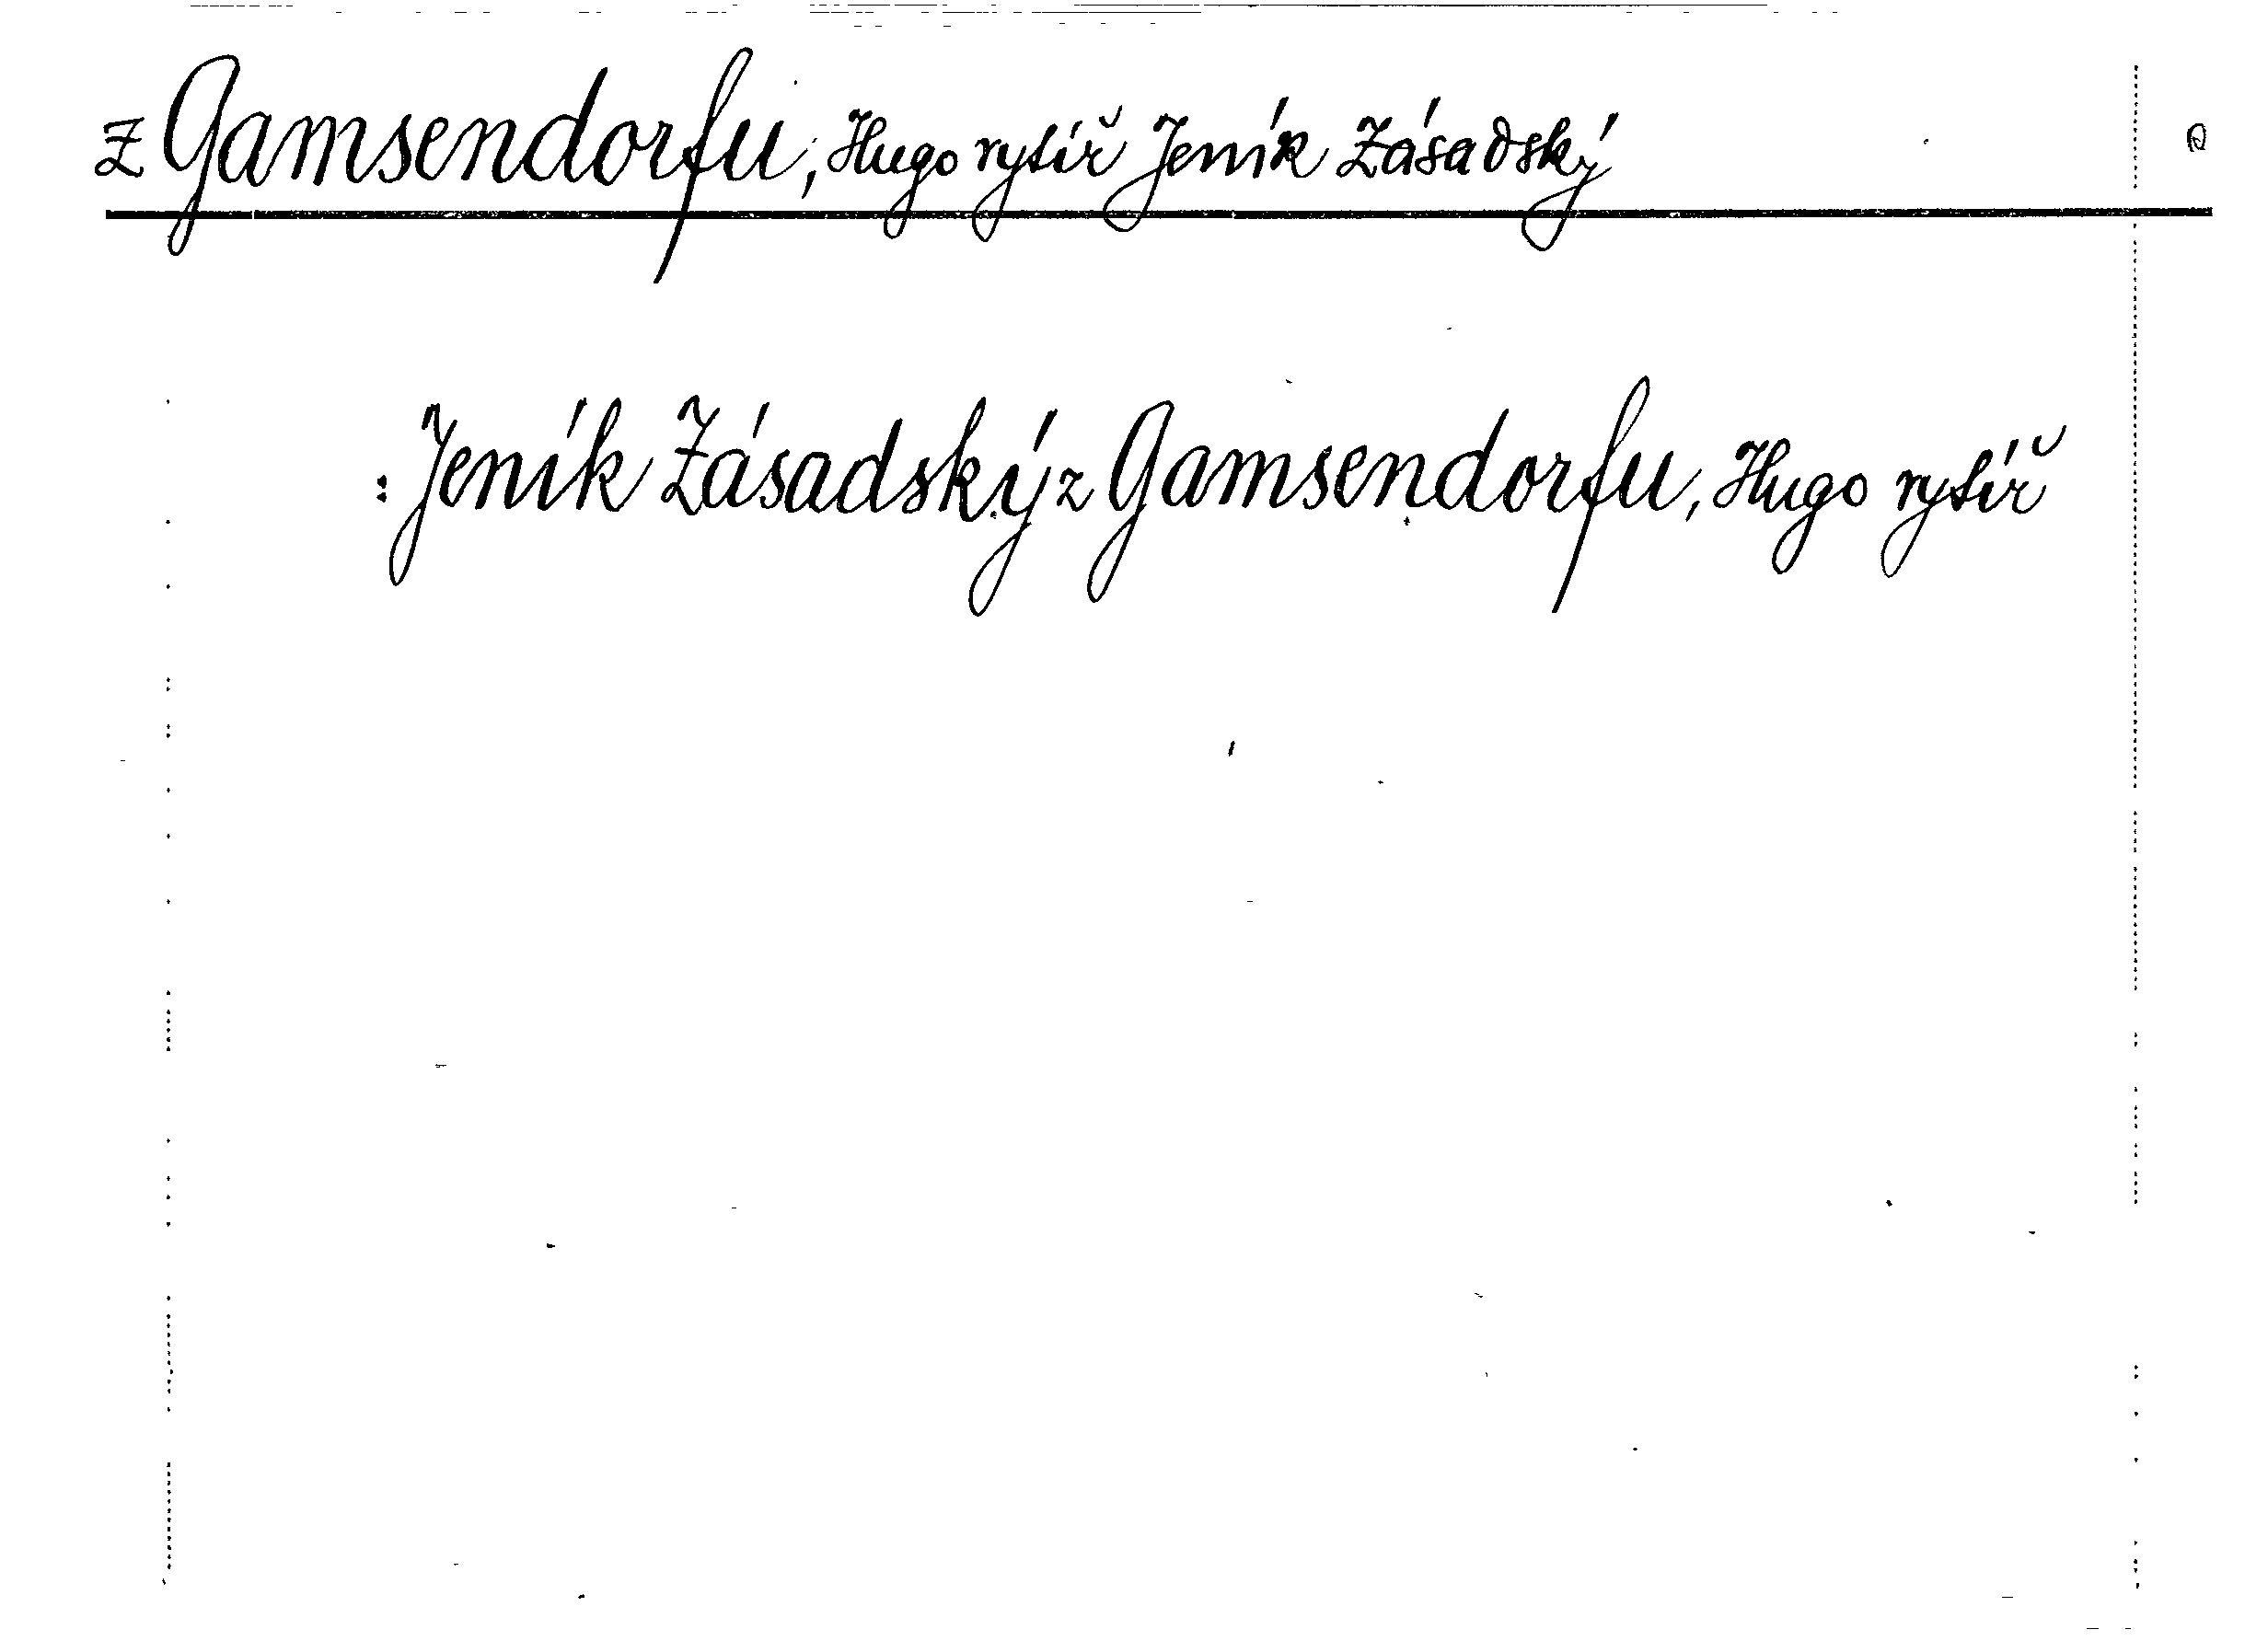 z Gamsendorfu, Hugo rytíř Jeník Zásadský
: Jeník Zásadský z Gamsendorfu, Hugo rytíř